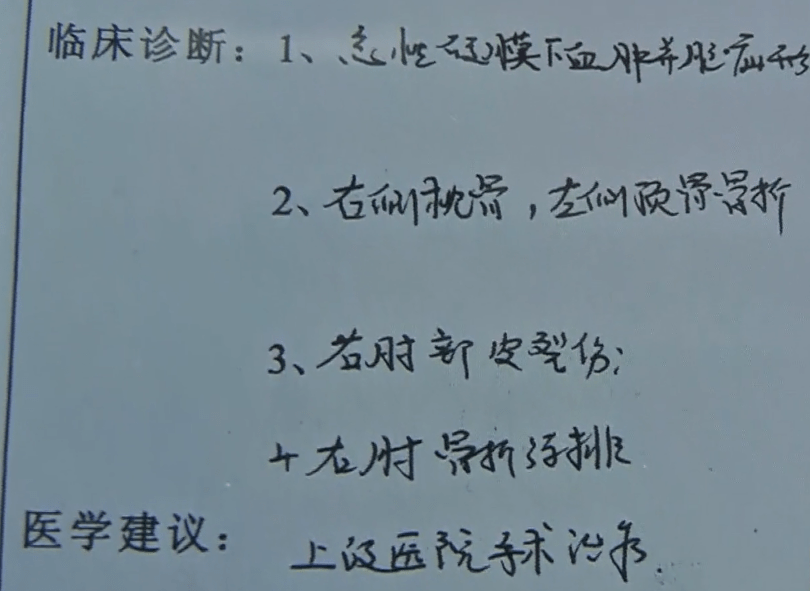 临床诊断：1、急性硬膜下血肿并脑疝形
2、右侧枕骨，左侧顶骨骨折
3、右肘部皮裂伤；
4右肘骨折待排
医学建议：上级医院手术治疗.